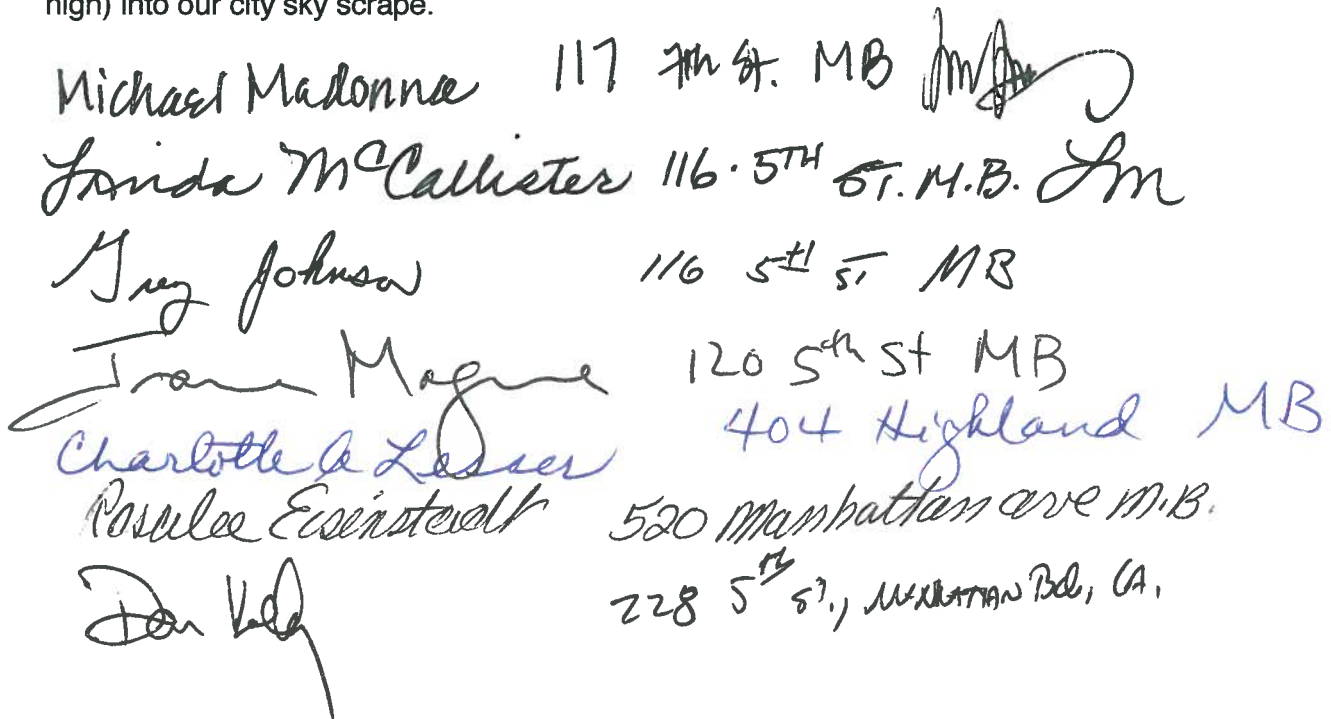 high) into our city sky scrape.
Michael Madonna 117 7th St. MB
Linda McCallister 116 · 5TH ST. M.B. LM
Greg Johnson 116 5th ST MB
120 5th St MB
Charlotte Lesser 404 Highland MB
Rosalee Eisenstadt 520 Manhattan ave M.B.
Don 228 5th ST., MANHATTAN Bch, CA.